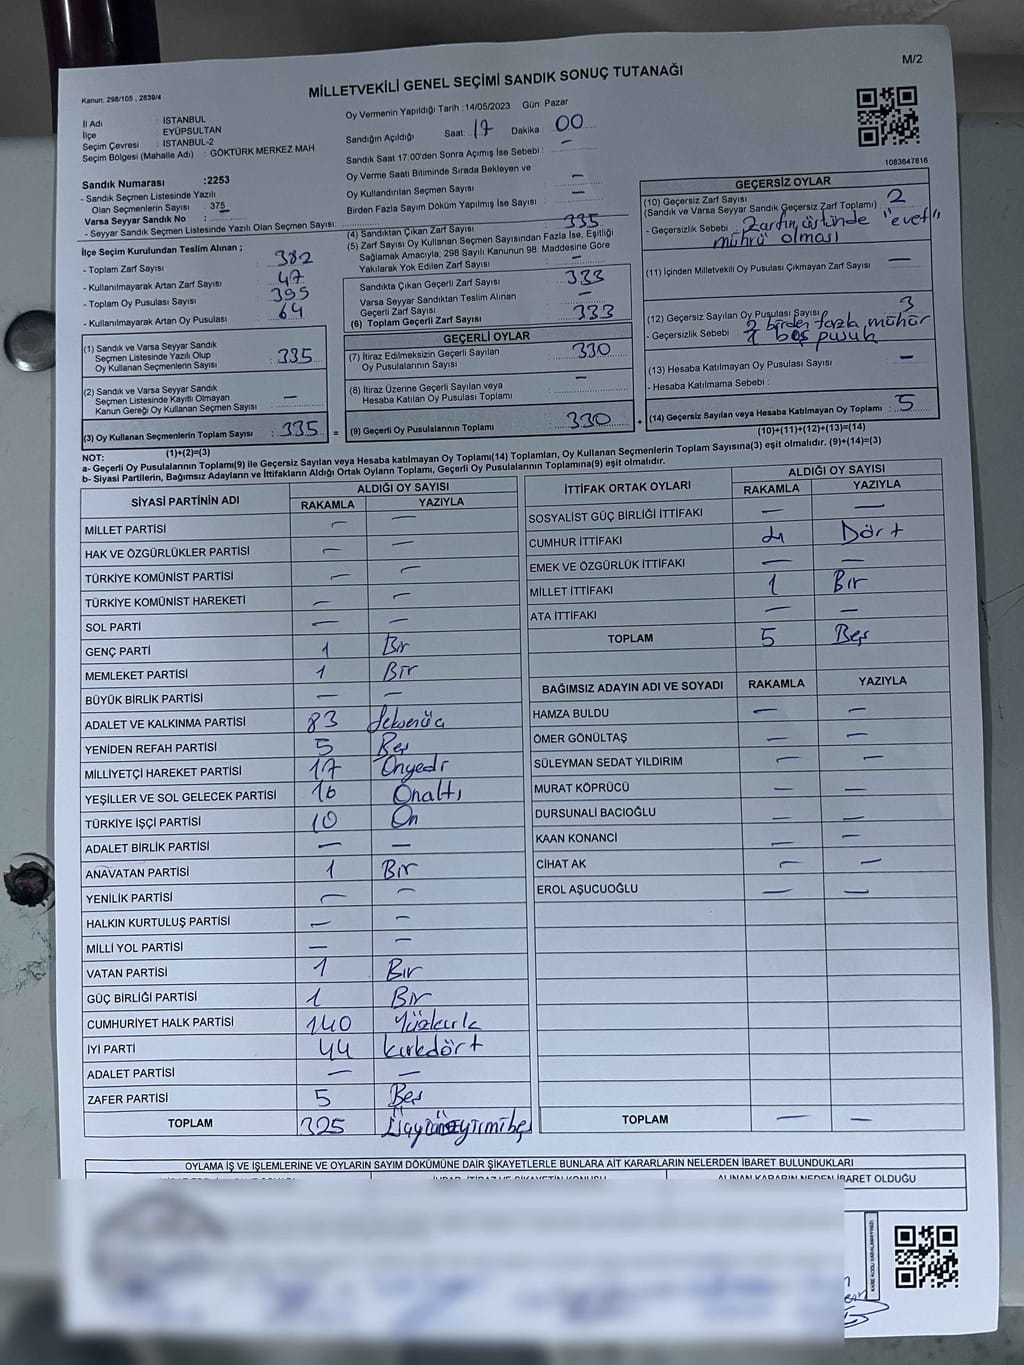 M/2
Kanun: 298/105 , 2839/4
MİLLETVEKİLİ GENEL SEÇİMİ SANDIK SONUÇ TUTANAĞI
İl Adı : İSTANBUL
İlçe : EYÜPSULTAN
Seçim Çevresi : İSTANBUL-2
Seçim Bölgesi (Mahalle Adı) : GÖKTÜRK MERKEZ MAH
Sandık Numarası :2253
- Sandık Seçmen Listesinde Yazılı
Olan Seçmenlerin Sayısı : 375
Varsa Seyyar Sandık No :
- Seyyar Sandık Seçmen Listesinde Yazılı Olan Seçmen Sayısı:
İlçe Seçim Kurulundan Teslim Alınan ;
- Toplam Zarf Sayısı : 382
- Kullanılmayarak Artan Zarf Sayısı : 47
- Toplam Oy Pusulası Sayısı : 395
- Kullanılmayarak Artan Oy Pusulası : 64
(1) Sandık ve Varsa Seyyar Sandık
Seçmen Listesinde Yazılı Olup
Oy Kullanan Seçmenlerin Sayısı : 335
(2) Sandık ve Varsa Seyyar Sandık
Seçmen Listesinde Kayıtlı Olmayan
Kanun Gereği Oy Kullanan Seçmen Sayısı : —
(3) Oy Kullanan Seçmenlerin Toplam Sayısı : 335
(1)+(2)=(3)
Oy Vermenin Yapıldığı Tarih :14/05/2023 Gün: Pazar
Sandığın Açıldığı Saat: 17 Dakika : 00
Sandık Saat 17:00'den Sonra Açımış İse Sebebi : —
Oy Verme Saati Bitiminde Sırada Bekleyen ve
Oy Kullandırılan Seçmen Sayısı : —
Birden Fazla Sayım Döküm Yapılmış İse Sayısı : —
(4) Sandıktan Çıkan Zarf Sayısı : 335
(5) Zarf Sayısı Oy Kullanan Seçmen Sayısından Fazla İse, Eşitliği
Sağlamak Amacıyla, 298 Sayılı Kanunun 98. Maddesine Göre
Yakılarak Yok Edilen Zarf Sayısı : —
Sandıkta Çıkan Geçerli Zarf Sayısı : 333
Varsa Seyyar Sandıktan Teslim Alınan
Geçerli Zarf Sayısı : —
(6) Toplam Geçerli Zarf Sayısı : 333
GEÇERLİ OYLAR
(7) İtiraz Edilmeksizin Geçerli Sayılan
Oy Pusulasının Sayısı : 330
(8) İtiraz Üzerine Geçerli Sayılan veya
Hesaba Katılan Oy Pusulası Toplamı : —
= (9) Geçerli Oy Pusulalarının Toplamı : 330 +
1083647816
GEÇERSİZ OYLAR
(10) Geçersiz Zarf Sayısı : 2
(Sandık ve Varsa Seyyar Sandık Geçersiz Zarf Toplamı)
- Geçersizlik Sebebi : Zarfın üstünde "evet"
mührü olması
(11) İçinden Milletvekili Oy Pusulası Çıkmayan Zarf Sayısı : —
(12) Geçersiz Sayılan Oy Pusulası Sayısı : 3
- Geçersizlik Sebebi : 2 birden fazla mühür
1 boş pusula
(13) Hesaba Katılmayan Oy Pusulası Sayısı : —
- Hesaba Katılmama Sebebi :
(14) Geçersiz Sayılan veya Hesaba Katılmayan Oy Toplamı : 5
(10)+(11)+(12)+(13)=(14)
NOT:
a- Geçerli Oy Pusulalarının Toplamı(9) ile Geçersiz Sayılan veya Hesaba katılmayan Oy Toplamı(14) Toplamları, Oy Kullanan Seçmenlerin Toplam Sayısına(3) eşit olmalıdır. (9)+(14)=(3)
b- Siyasi Partilerin, Bağımsız Adayların ve İttifakların Aldığı Ortak Oyların Toplamı, Geçerli Oy Pusulalarının Toplamına(9) eşit olmalıdır.
SİYASİ PARTİNİN ADI ALDIĞI OY SAYISI
RAKAMLA YAZIYLA
MİLLET PARTİSİ — —
HAK VE ÖZGÜRLÜKLER PARTİSİ — —
TÜRKİYE KOMÜNİST PARTİSİ — —
TÜRKİYE KOMÜNİST HAREKETİ — —
SOL PARTİ — —
GENÇ PARTİ 1 Bir
MEMLEKET PARTİSİ 1 Bir
BÜYÜK BİRLİK PARTİSİ — —
ADALET VE KALKINMA PARTİSİ 83 Seksenüç
YENİDEN REFAH PARTİSİ 5 Beş
MİLLİYETÇİ HAREKET PARTİSİ 17 Onyedi
YEŞİLLER VE SOL GELECEK PARTİSİ 16 Onaltı
TÜRKİYE İŞÇİ PARTİSİ 10 On
ADALET BİRLİK PARTİSİ — —
ANAVATAN PARTİSİ 1 Bir
YENİLİK PARTİSİ — —
HALKIN KURTULUŞ PARTİSİ — —
MİLLİ YOL PARTİSİ — —
VATAN PARTİSİ 1 Bir
GÜÇ BİRLİĞİ PARTİSİ 1 Bir
CUMHURİYET HALK PARTİSİ 140 Yüzkırk
İYİ PARTİ 44 kırkdört
ADALET PARTİSİ — —
ZAFER PARTİSİ 5 Beş
TOPLAM 325 Üçyüzyirmibeş
İTTİFAK ORTAK OYLARI ALDIĞI OY SAYISI
RAKAMLA YAZIYLA
SOSYALİST GÜÇ BİRLİĞİ İTTİFAKI — —
CUMHUR İTTİFAKI 4 Dört
EMEK VE ÖZGÜRLÜK İTTİFAKI — —
MİLLET İTTİFAKI 1 Bir
ATA İTTİFAKI — —
TOPLAM 5 Beş
BAĞIMSIZ ADAYIN ADI VE SOYADI RAKAMLA YAZIYLA
HAMZA BULDU — —
ÖMER GÖNÜLTAŞ — —
SÜLEYMAN SEDAT YILDIRIM — —
MURAT KÖPRÜCÜ — —
DURSUNALİ BACIOĞLU — —
KAAN KONANCİ — —
CİHAT AK — —
EROL AŞUCUOĞLU — —
TOPLAM — —
OYLAMA İŞ VE İŞLEMLERİNE VE OYLARIN SAYIM DÖKÜMÜNE DAİR ŞİKAYETLERLE BUNLARA AİT KARARLARIN NELERDEN İBARET BULUNDUKLARI
ALINAN KARARIN NEDEN İBARET OLDUĞU